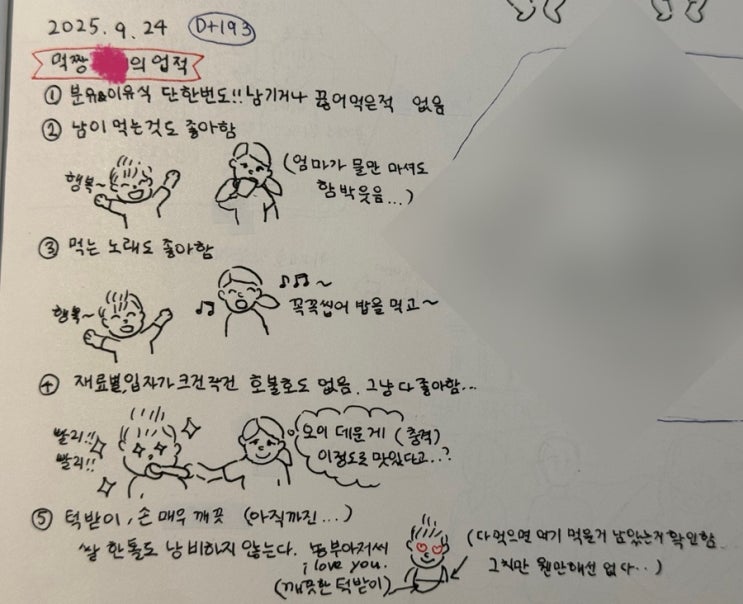 2025. 9. 24 D+193
먹짱 의 업적
① 분유&이유식 단한번도!! 남기거나 끊어먹은적 없음
② 남이 먹는것도 좋아함
행복~
(엄마가 물만 마셔도
함박웃음...)
③ 먹는 노래도 좋아함
행복~
♪♪♪~
꼭꼭씹어 밥을 먹고~
④ 재료별, 입자가 크건작건 호불호도 없음. 그냥 다 좋아함...
빨리!!
빨리!!
오이 데운게 (충격)
이정도로 맛있다고..?
⑤ 턱받이, 손 매우 깨끗 (아직까진...)
쌀 한톨도 낭비하지 않는다. 농부아저씨
i love you.
(깨끗한 턱받이)
(다먹으면 여기 먹을거 남았는지 확인함
그치만 웬만해선 없다..)